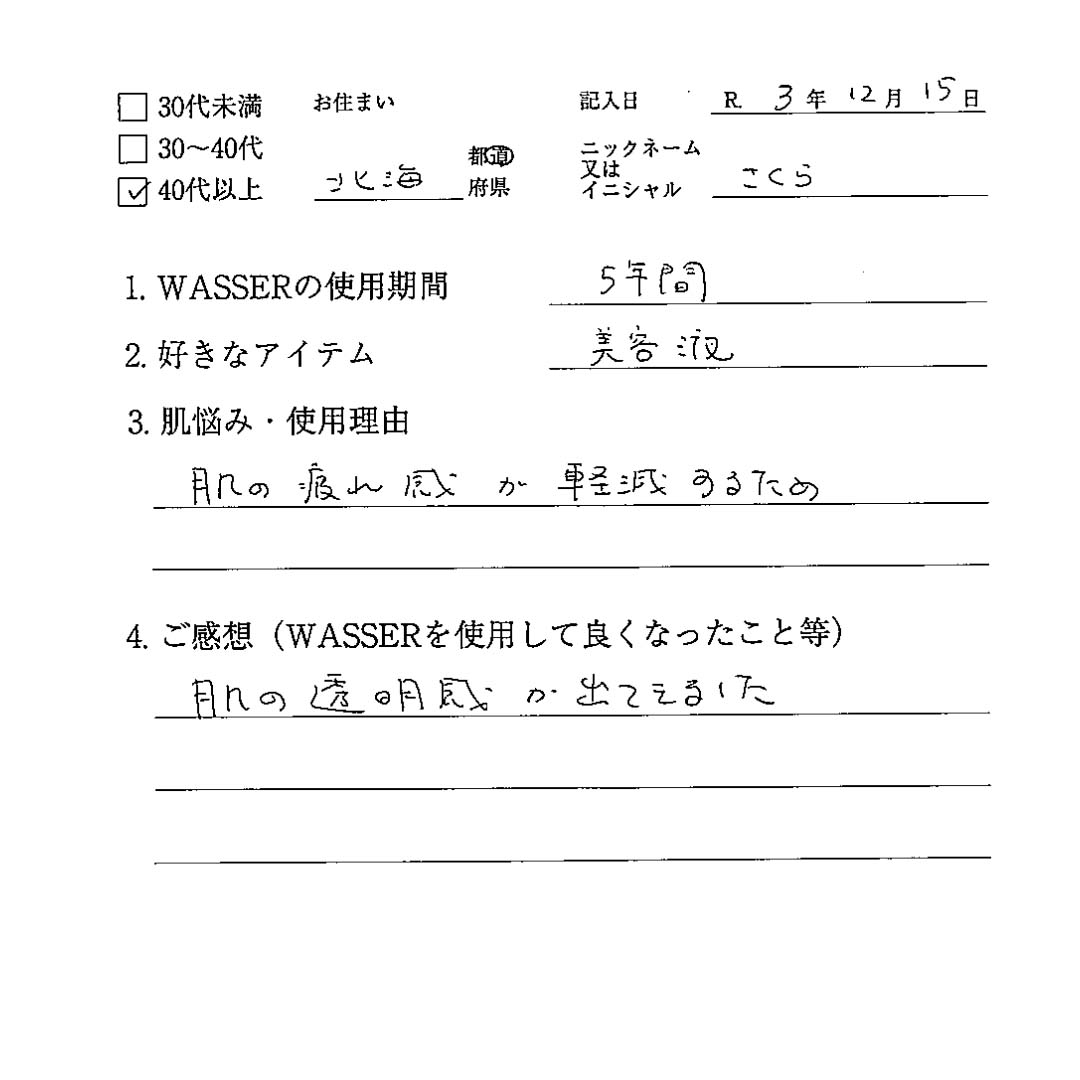 □ 30代未満
□ 30〜40代
☑ 40代以上
お住まい
北海 都道府県
記入日 R. 3年 12月 15日
ニックネーム又はイニシャル さくら
1. WASSERの使用期間 5年間
2. 好きなアイテム 美容液
3. 肌悩み・使用理由
肌の疲れ感が軽減するため
4. ご感想（WASSERを使用して良くなったこと等）
肌の透明感が出てきました